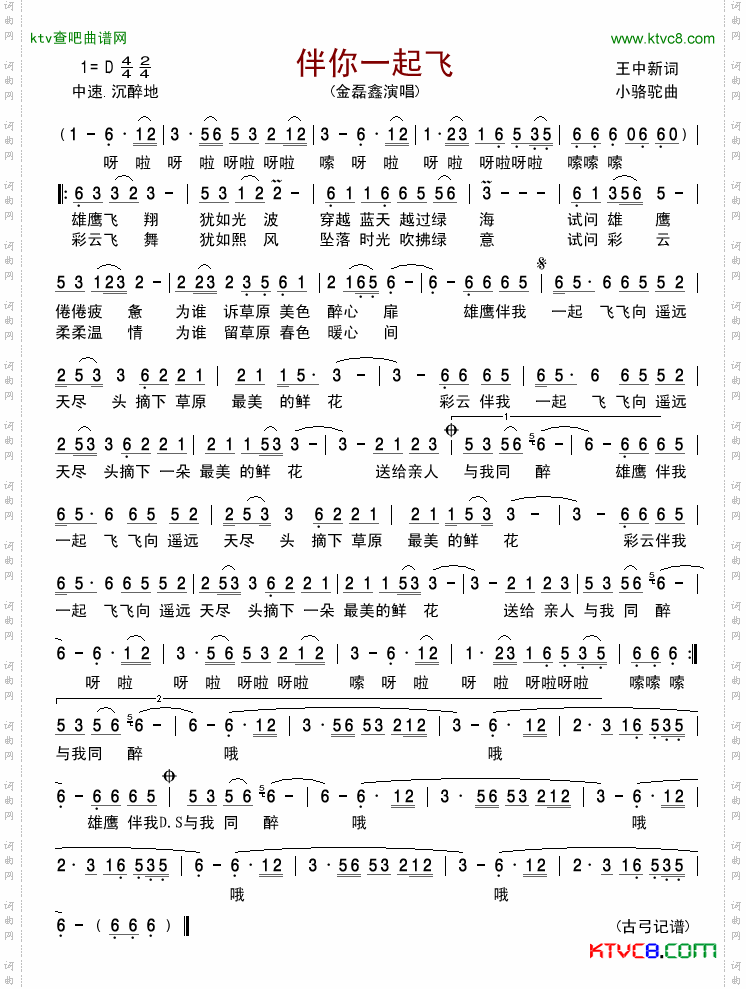 ktv查吧曲谱网 www.ktvc8.com
伴你一起飞
1=D 4/4 2/4 王中新词
中速.沉醉地 (金磊鑫演唱) 小骆驼曲
(1 - 6· 12 | 3· 56 53 212 | 3 - 6· 12 | 1· 23 16· 535 | 6 6 6 06 60) |
呀 啦 呀 啦 呀啦 呀啦 嗦 呀 啦 呀 啦 呀啦呀啦 嗦嗦 嗦
‖: 6 3 3 2 3 - | 5 3 1 2 2 - | 6 1 1 6 6 5 56 | 3 - - - | 6 1 356 5 - |
雄鹰飞 翔 犹如光 波 穿越 蓝天 越过绿 海 试问 雄 鹰
彩云飞 舞 犹如熙 风 坠落 时光 吹拂绿 意 试问 彩 云
5 3 123 2 - | 2 23 2 3 5 6 1 | 2 165 6 - | 6 - 6 6 6 5 | 6 5· 6 6 5 5 2 |
倦倦疲 惫 为谁 诉草原 美色 醉心 扉 雄鹰伴我 一起 飞飞向 遥远
柔柔温 情 为谁 留草原 春色 暖心 间
2 53 3 6 2 2 1 | 2 1 15· 3 - | 3 - 6 6 6 5 | 6 5· 6 6 5 5 2 |
天尽 头 摘下 草原 最美 的鲜 花 彩云 伴我 一起 飞 飞向 遥远
1
2 53 3 6 2 2 1 | 2 1 153 3 - | 3 - 2 1 2 3 | 5 3 56 56 - | 6 - 6 6 6 5 |
天尽 头摘下 一朵 最美 的鲜 花 送给亲人 与我同 醉 雄鹰 伴我
6 5· 6 6 5 5 2 | 2 53 3 6 2 2 1 | 2 1 153 3 - | 3 - 6 6 6 5 |
一起 飞 飞向 遥远 天尽 头 摘下 草原 最美 的鲜 花 彩云伴我
6 5· 6 6 5 5 2 | 2 53 3 6 2 2 1 | 2 1 153 3 - | 3 - 2 1 2 3 | 5 3 56 56 - |
一起 飞飞向 遥远 天尽 头摘下 一朵 最美的鲜 花 送给 亲人 与我 同 醉
6 - 6· 12 | 3· 56 53 212 | 3 - 6· 12 | 1· 23 16· 535 | 6 6 6 :‖
呀 啦 呀 啦 呀啦 呀啦 嗦 呀 啦 呀 啦 呀啦呀啦 嗦嗦 嗦
2
5 3 5 6 56 - | 6 - 6· 12 | 3· 56 53 212 | 3 - 6· 12 | 2· 3 16 535 |
与我同 醉 哦 哦
6 - 6 6 6 5 | 5 3 5 6 56 - | 6 - 6· 12 | 3· 56 53 212 | 3 - 6· 12 |
雄鹰 伴我D.S与我 同 醉 哦 哦
2· 3 16 535 | 6 - 6· 12 | 3· 56 53 212 | 3 - 6· 12 | 2· 3 16 535 |
哦 哦
6 - ( 6 6 6 ) ‖ (古弓记谱)
KTVC8.COM